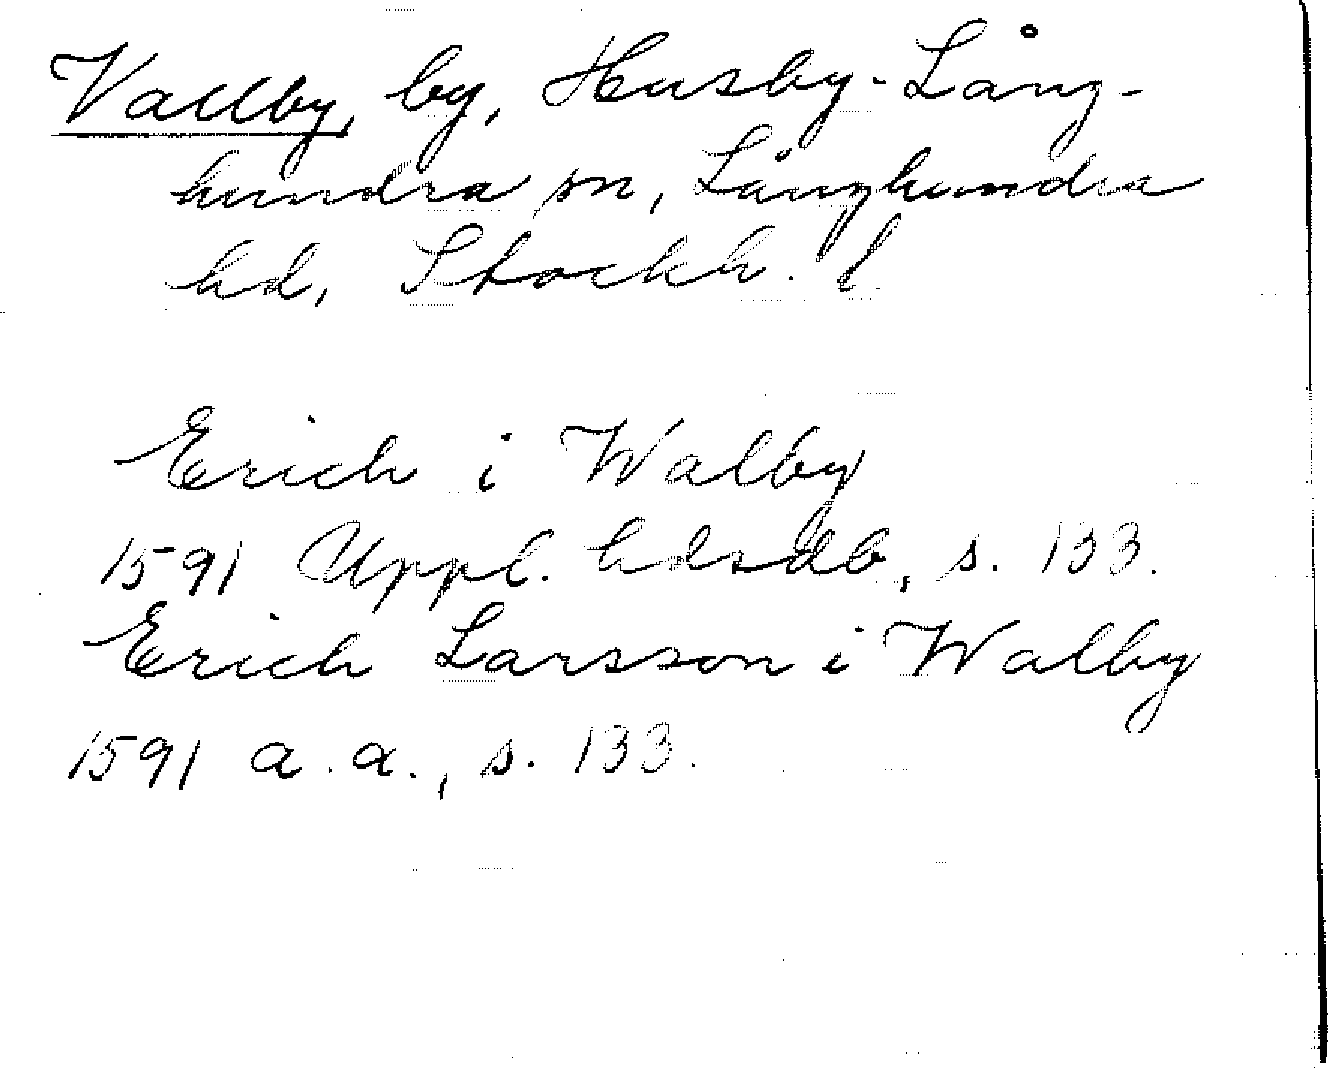 Vallby, by, Husby-Lång-
hundra sn, Långhundra
hd, Stockh. l
Erich i Walby
1591 Uppl. hdsdb, s. 133.
Erich Larsson i Walby
1591 a.a., s. 133.